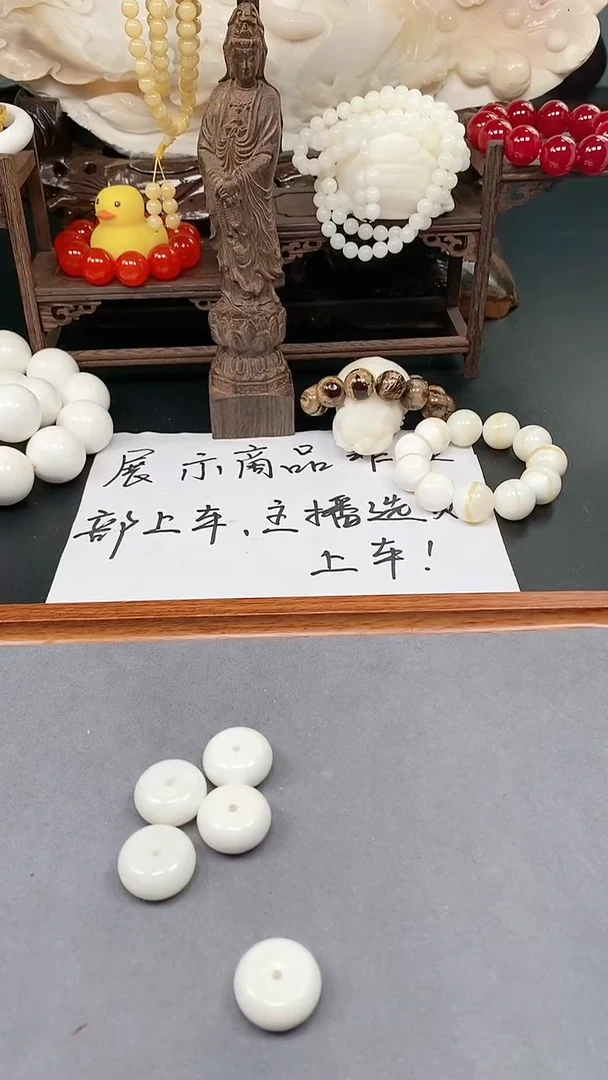 展示商品
部上车,主播选
上车!